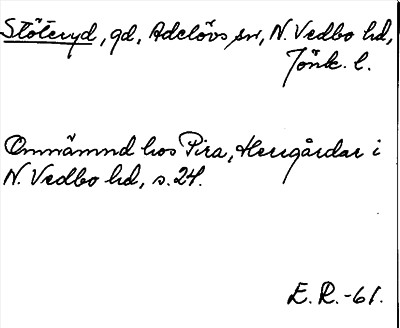 Stöteryd, gd, Adelövs sn, N. Vedbo hd,
Jönk. l.
Omnämnd hos Pira, Herrgårdar i
N. Vedbo hd, s. 24.
E. R. -61.